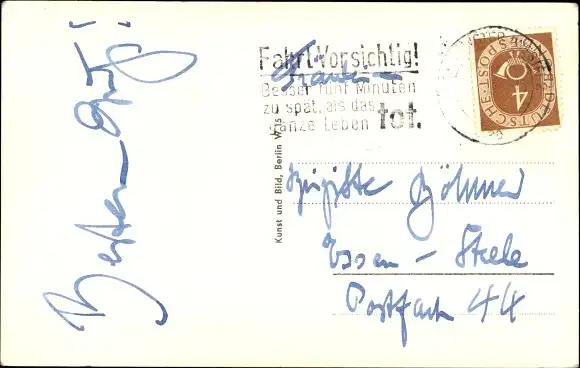 Besten Gruß!
Fahrt Vorsichtig!
Besser fünf Minuten
zu spät, als das
ganze Leben tot.
DEUTSCHE POST
4
Fräulein
Brigitte Böhmer
Essen - Steele
Postfach 44
Kunst und Bild, Berlin W 15